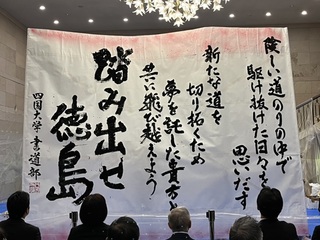 険しい道のりの中で
駆け抜けた日々を
思いだす
新たな道を
切り拓くため
夢を託した貴方と
共に飛び越えよう
踏み出せ
徳島
四国大学 書道部